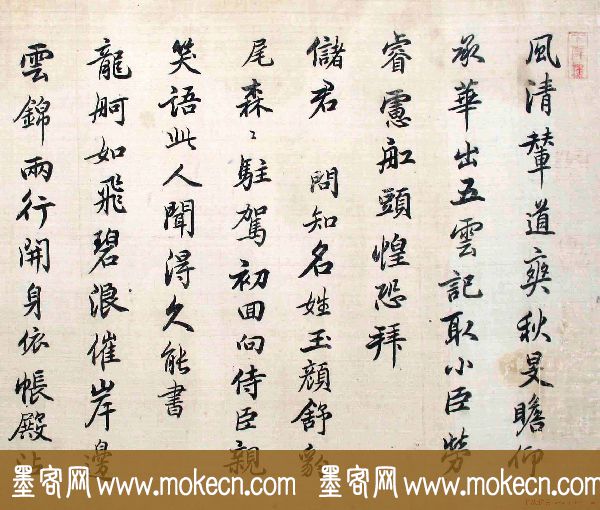 風清輦道爽秋旻瞻仰
承華出五雲記取小臣勞
睿慮舡頭惶恐拜
儲君 問知名姓玉顏舒豹
尾森〻駐駕初回向侍臣親
笑語此人聞得久能書
龍舸如飛碧浪催岸邊
雲錦兩行開身依帳殿沾
墨客网 www.mokecn.com 墨客网 www.mokecn.com